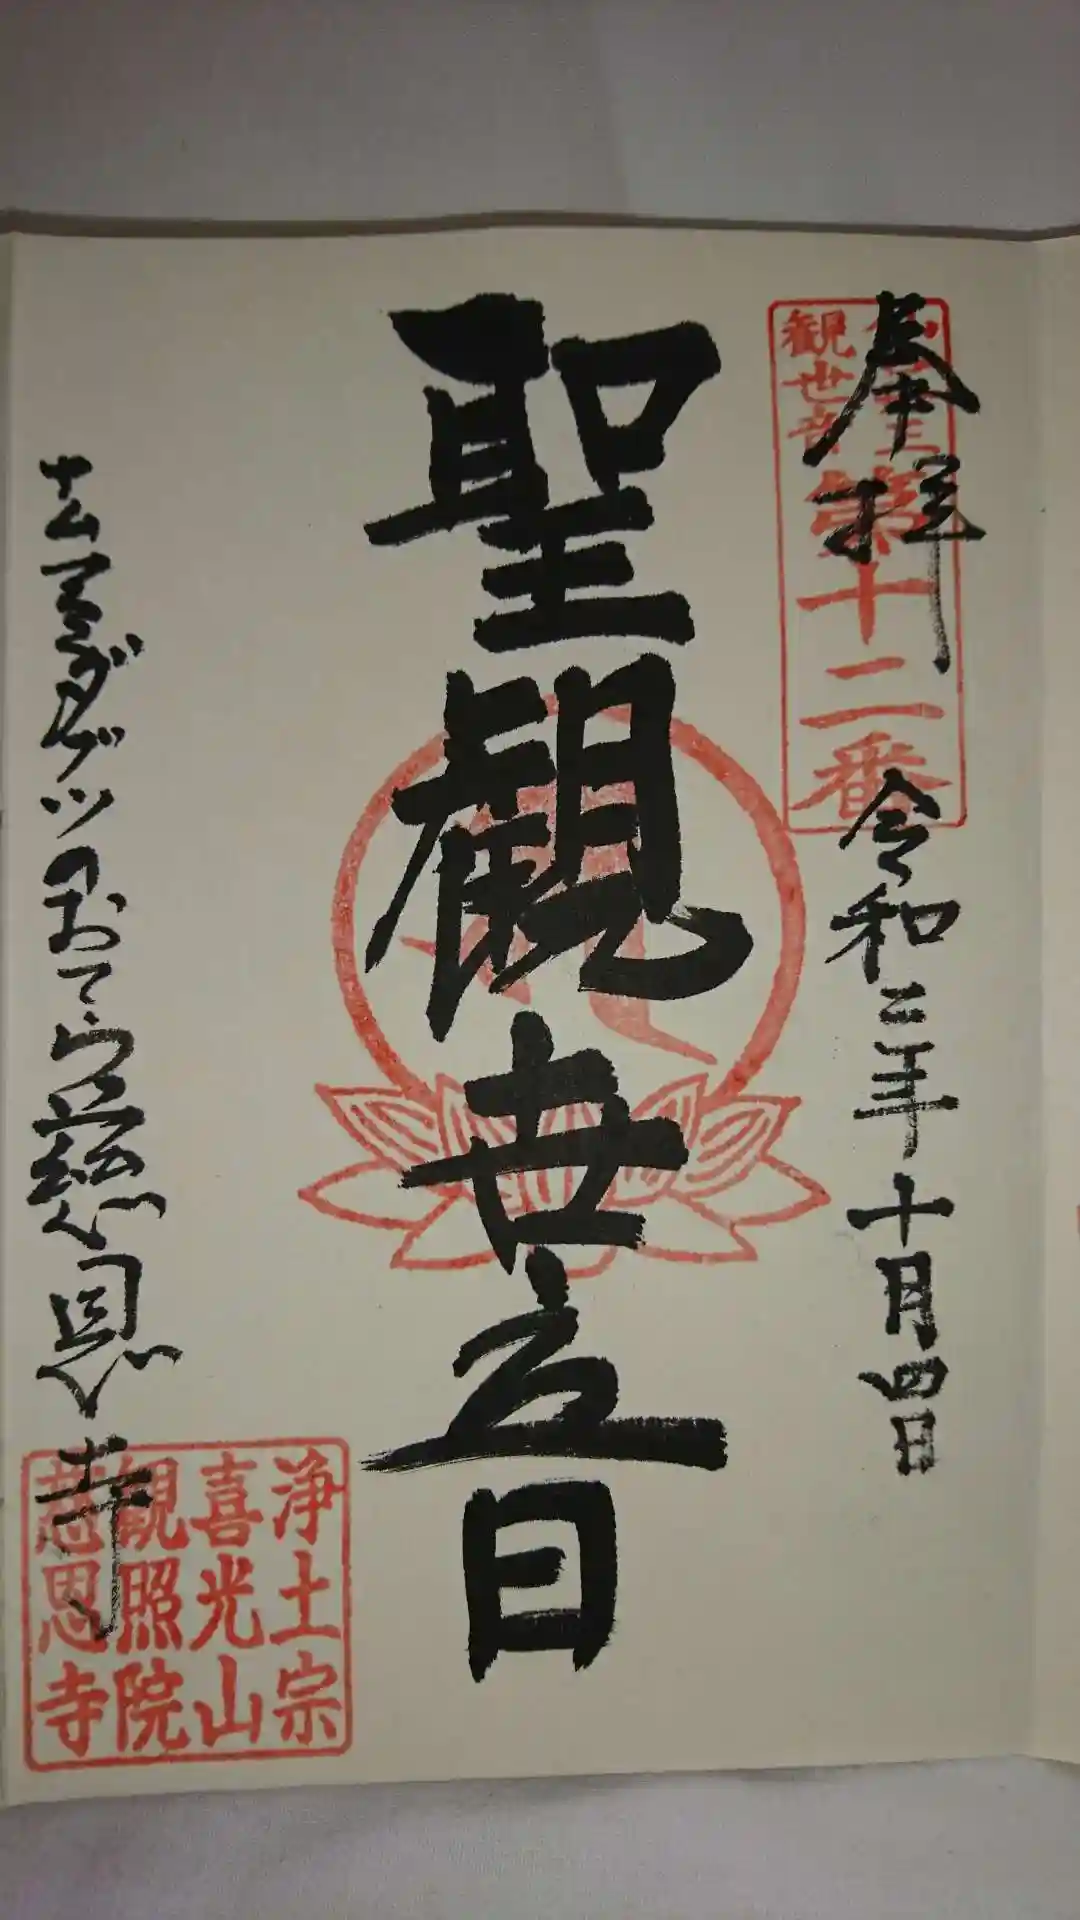 奉拝
第十二番
観世音
令和二年十月四日
聖観世音
ナムアミダブツのおてら慈恩寺
浄土宗
喜光山
観照院
慈恩寺